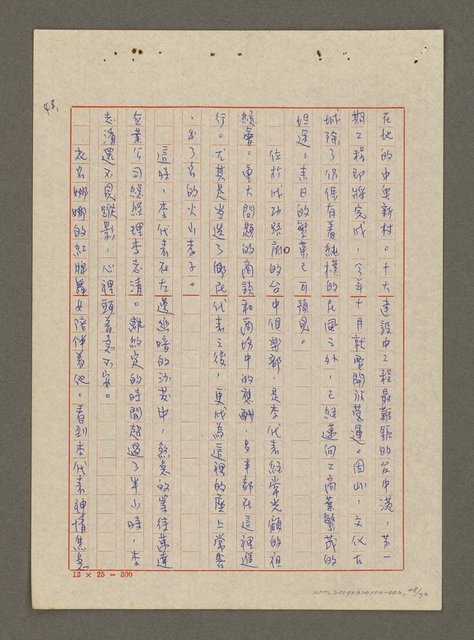 48.
在地的中興新村。十大建設中工程最艱鉅的台中港,第一
期工程即將完成,今年十月就要開放營運。因此,文化古
城除了仍保有着純樸的民風之外,已經邁向工商業繁茂的
坦途,來日的繁華已可預見。
位於成功路底的台中俱樂部,是李代表經常光顧的
總會。重大問題的商談和商場中的應酬,多半都在這裡進
行。尤其是當選了國民代表之後,更成為這裡的座上常客
,出了名的火山孝子。
這時,李代表在左邊幽暗的沙發中,焦急的等待華達
企業公司總經理李志清。離約定的時間超過了半小時,李
志清還不見蹤影,心裡頭着急不安。
衣名娜娜的紅牌舞女陪伴着他。看到李代表神情焦急
12 × 25 = 300
NMTL20090320102-002